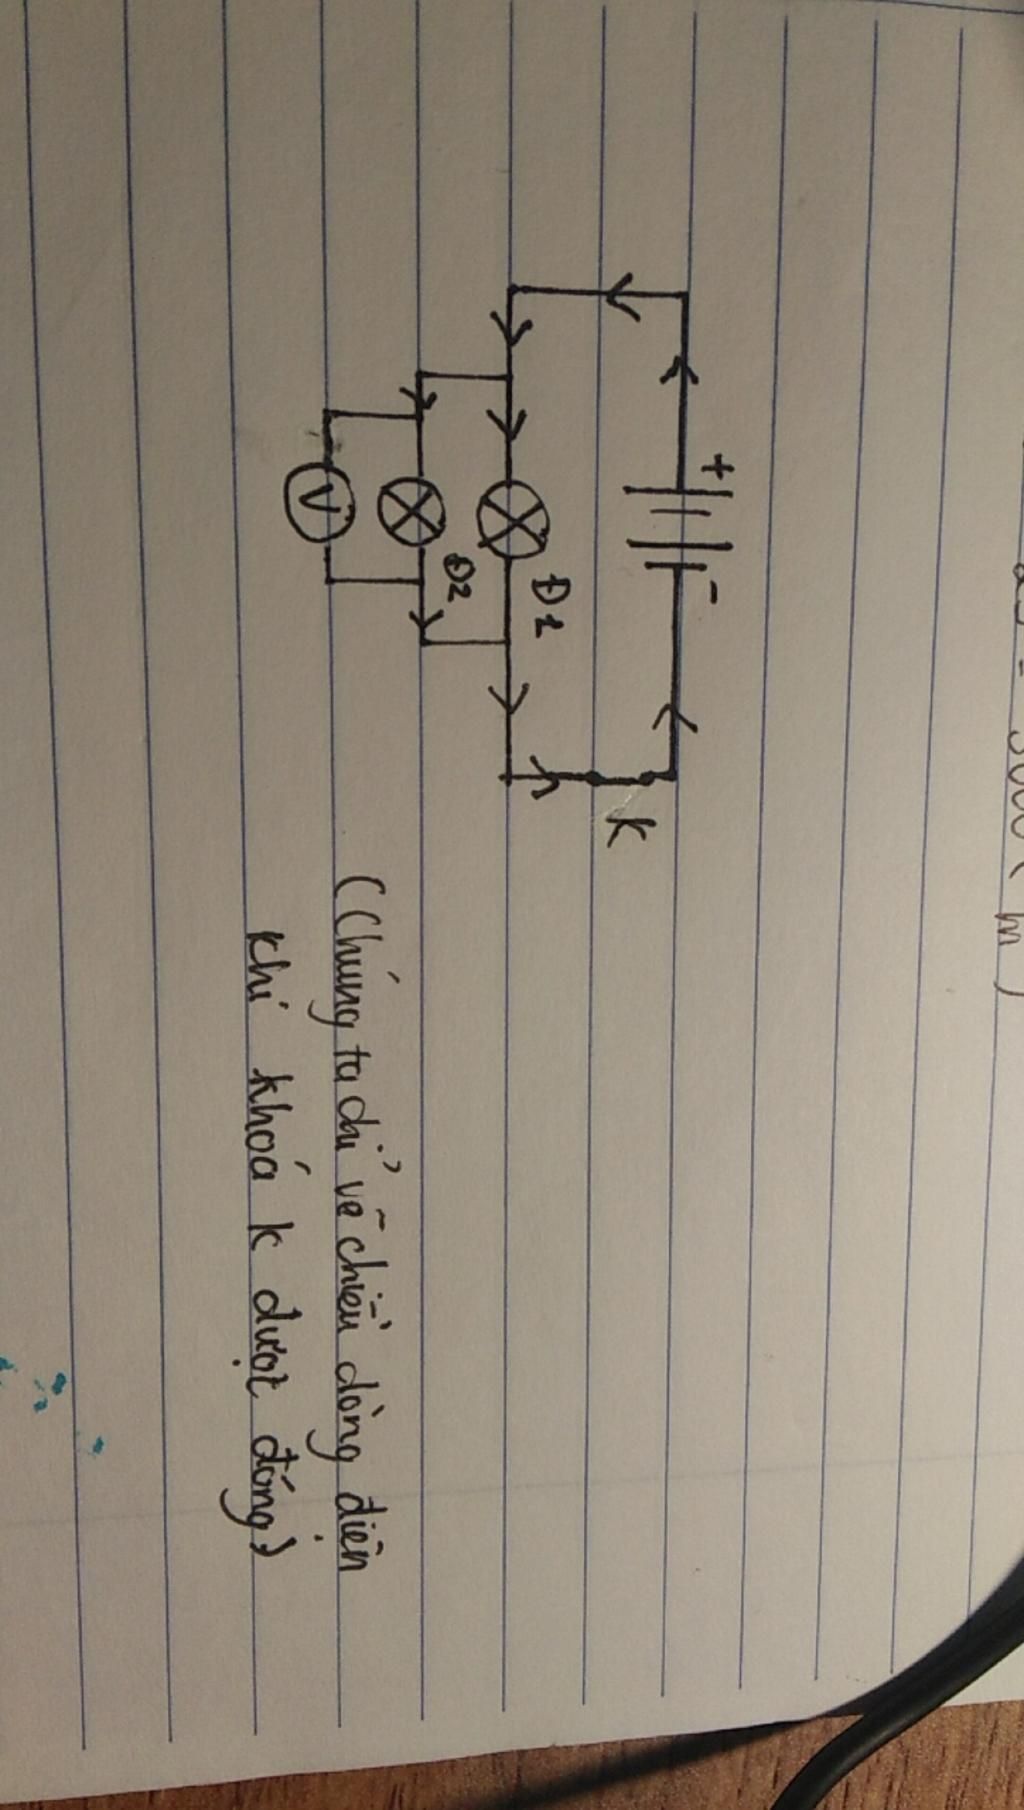 = 3000 ( m )
+ -
K
Đ1
Đ2
V
(Chúng ta chỉ vẽ chiều dòng điện
khi khoá k được đóng)